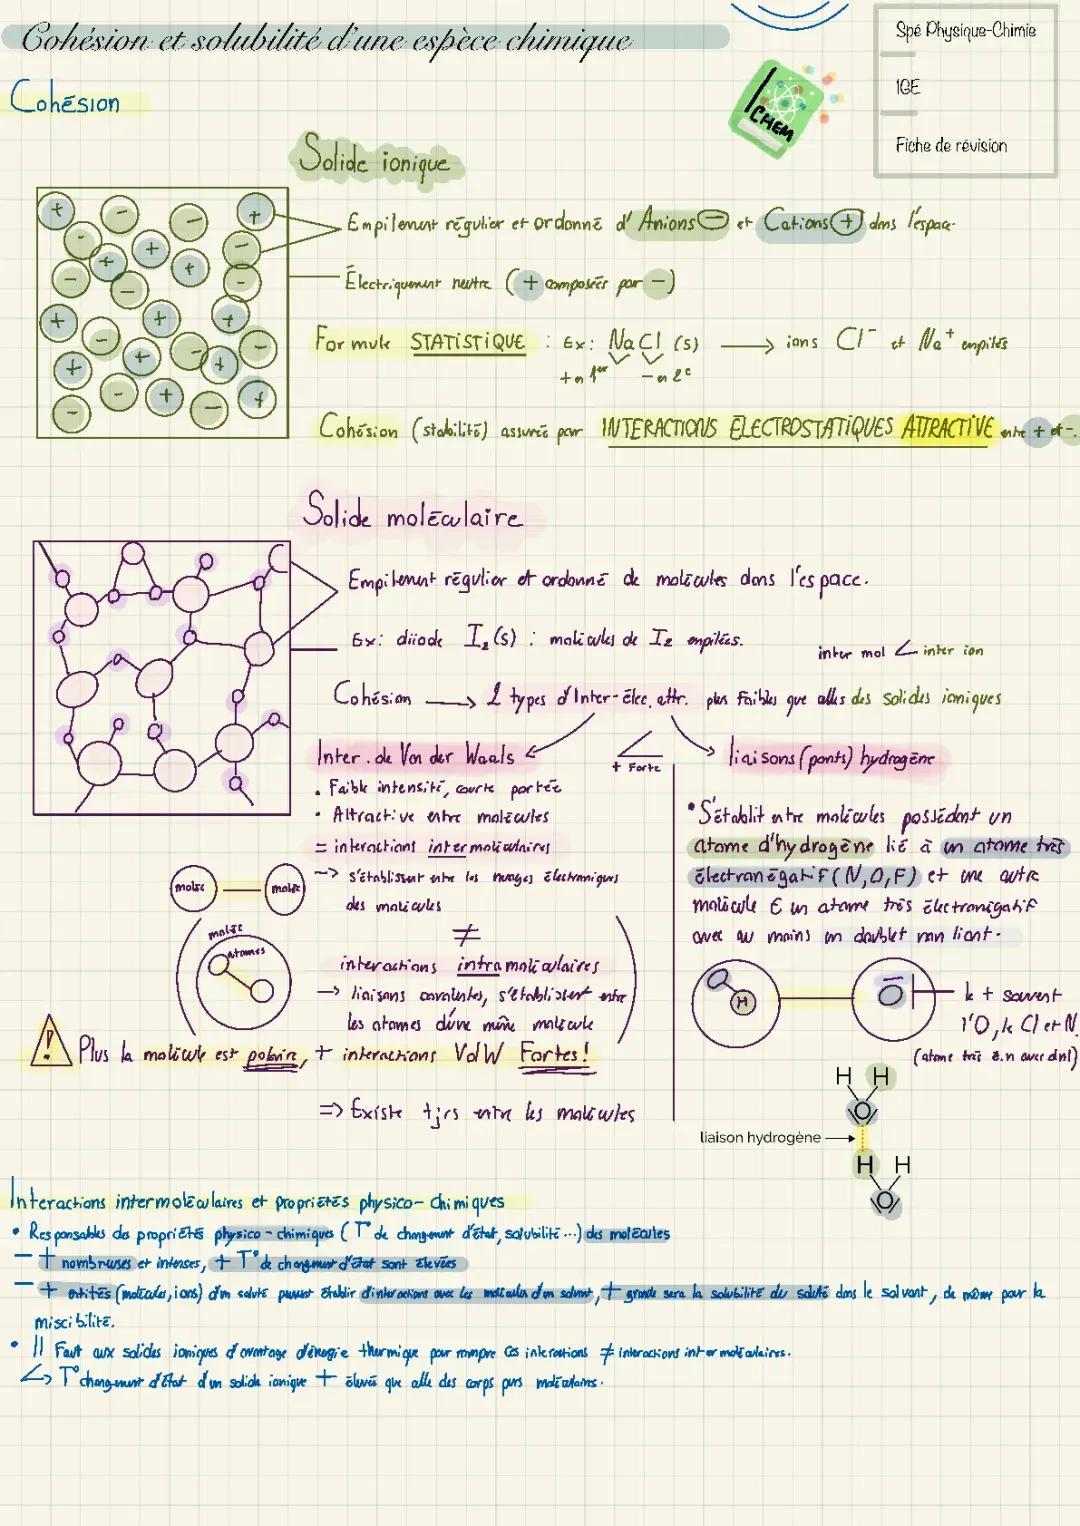 Cohésion et solubilité d'une espèce chimique
Spé Physique-Chimie
1GE
Fiche de révision
CHEM
Cohésion
Solide ionique
Empilement régulier et ordonné d' Anions - et Cations + dans l'espace.
Électriquement neutre ( + composées par - )
Formule STATISTIQUE : Ex: NaCl (s) → ions Cl⁻ et Na⁺ empilés
+ en 1er - en 2e
Cohésion (stabilité) assurée par INTERACTIONS ÉLECTROSTATIQUES ATTRACTIVE entre + et -.
Solide moléculaire
Empilement régulier et ordonné de molécules dans l'espace.
Ex: diiode I₂(s) : molécules de I₂ empilées.
inter mol < inter ion
Cohésion → 2 types d'Inter-élec. attr. plus faibles que celles des solides ioniques
Inter. de Van der Waals
< + Forte
liaisons (ponts) hydrogène
. Faible intensité, courte portée
• Attractive entre molécules
= interactions intermoléculaires
-> s'établissent entre les nuages électroniques
des molécules
moléc — moléc
≠
moléc
atomes
interactions intramoléculaires
-> liaisons covalentes, s'établissent entre
les atomes d'une même molécule
! Plus la molécule est polaire, + interactions VdW Fortes!
=> Existe tjrs entre les molécules
• S'établit entre molécules possédant un
atome d'hydrogène lié à un atome très
électronégatif (N,O,F) et une autre
molécule € un atome très électronégatif
avec au moins un doublet non liant.
H
O
le + souvent
l'O, le Cl et N.
(atome très é.n avec dnl)
H H
O
liaison hydrogène →
H H
O
Interactions intermoléculaires et propriétés physico-chimiques
• Responsables des propriétés physico-chimiques (T° de changement d'état, solubilité...) des molécules
- + nombreuses et intenses, + T° de changement d'état sont élevées
- + entités (molécules, ions) d'un soluté peuvent établir d'interactions avec les molécules d'un solvant, + grande sera la solubilité du soluté dans le solvant, de même pour la
miscibilité.
• Il faut aux solides ioniques d'avantage d'énergie thermique pour rompre ces interactions ≠ interactions intermoléculaires.
↳ T° changement d'état d'un solide ionique + élevée que celle des corps purs moléculaires.